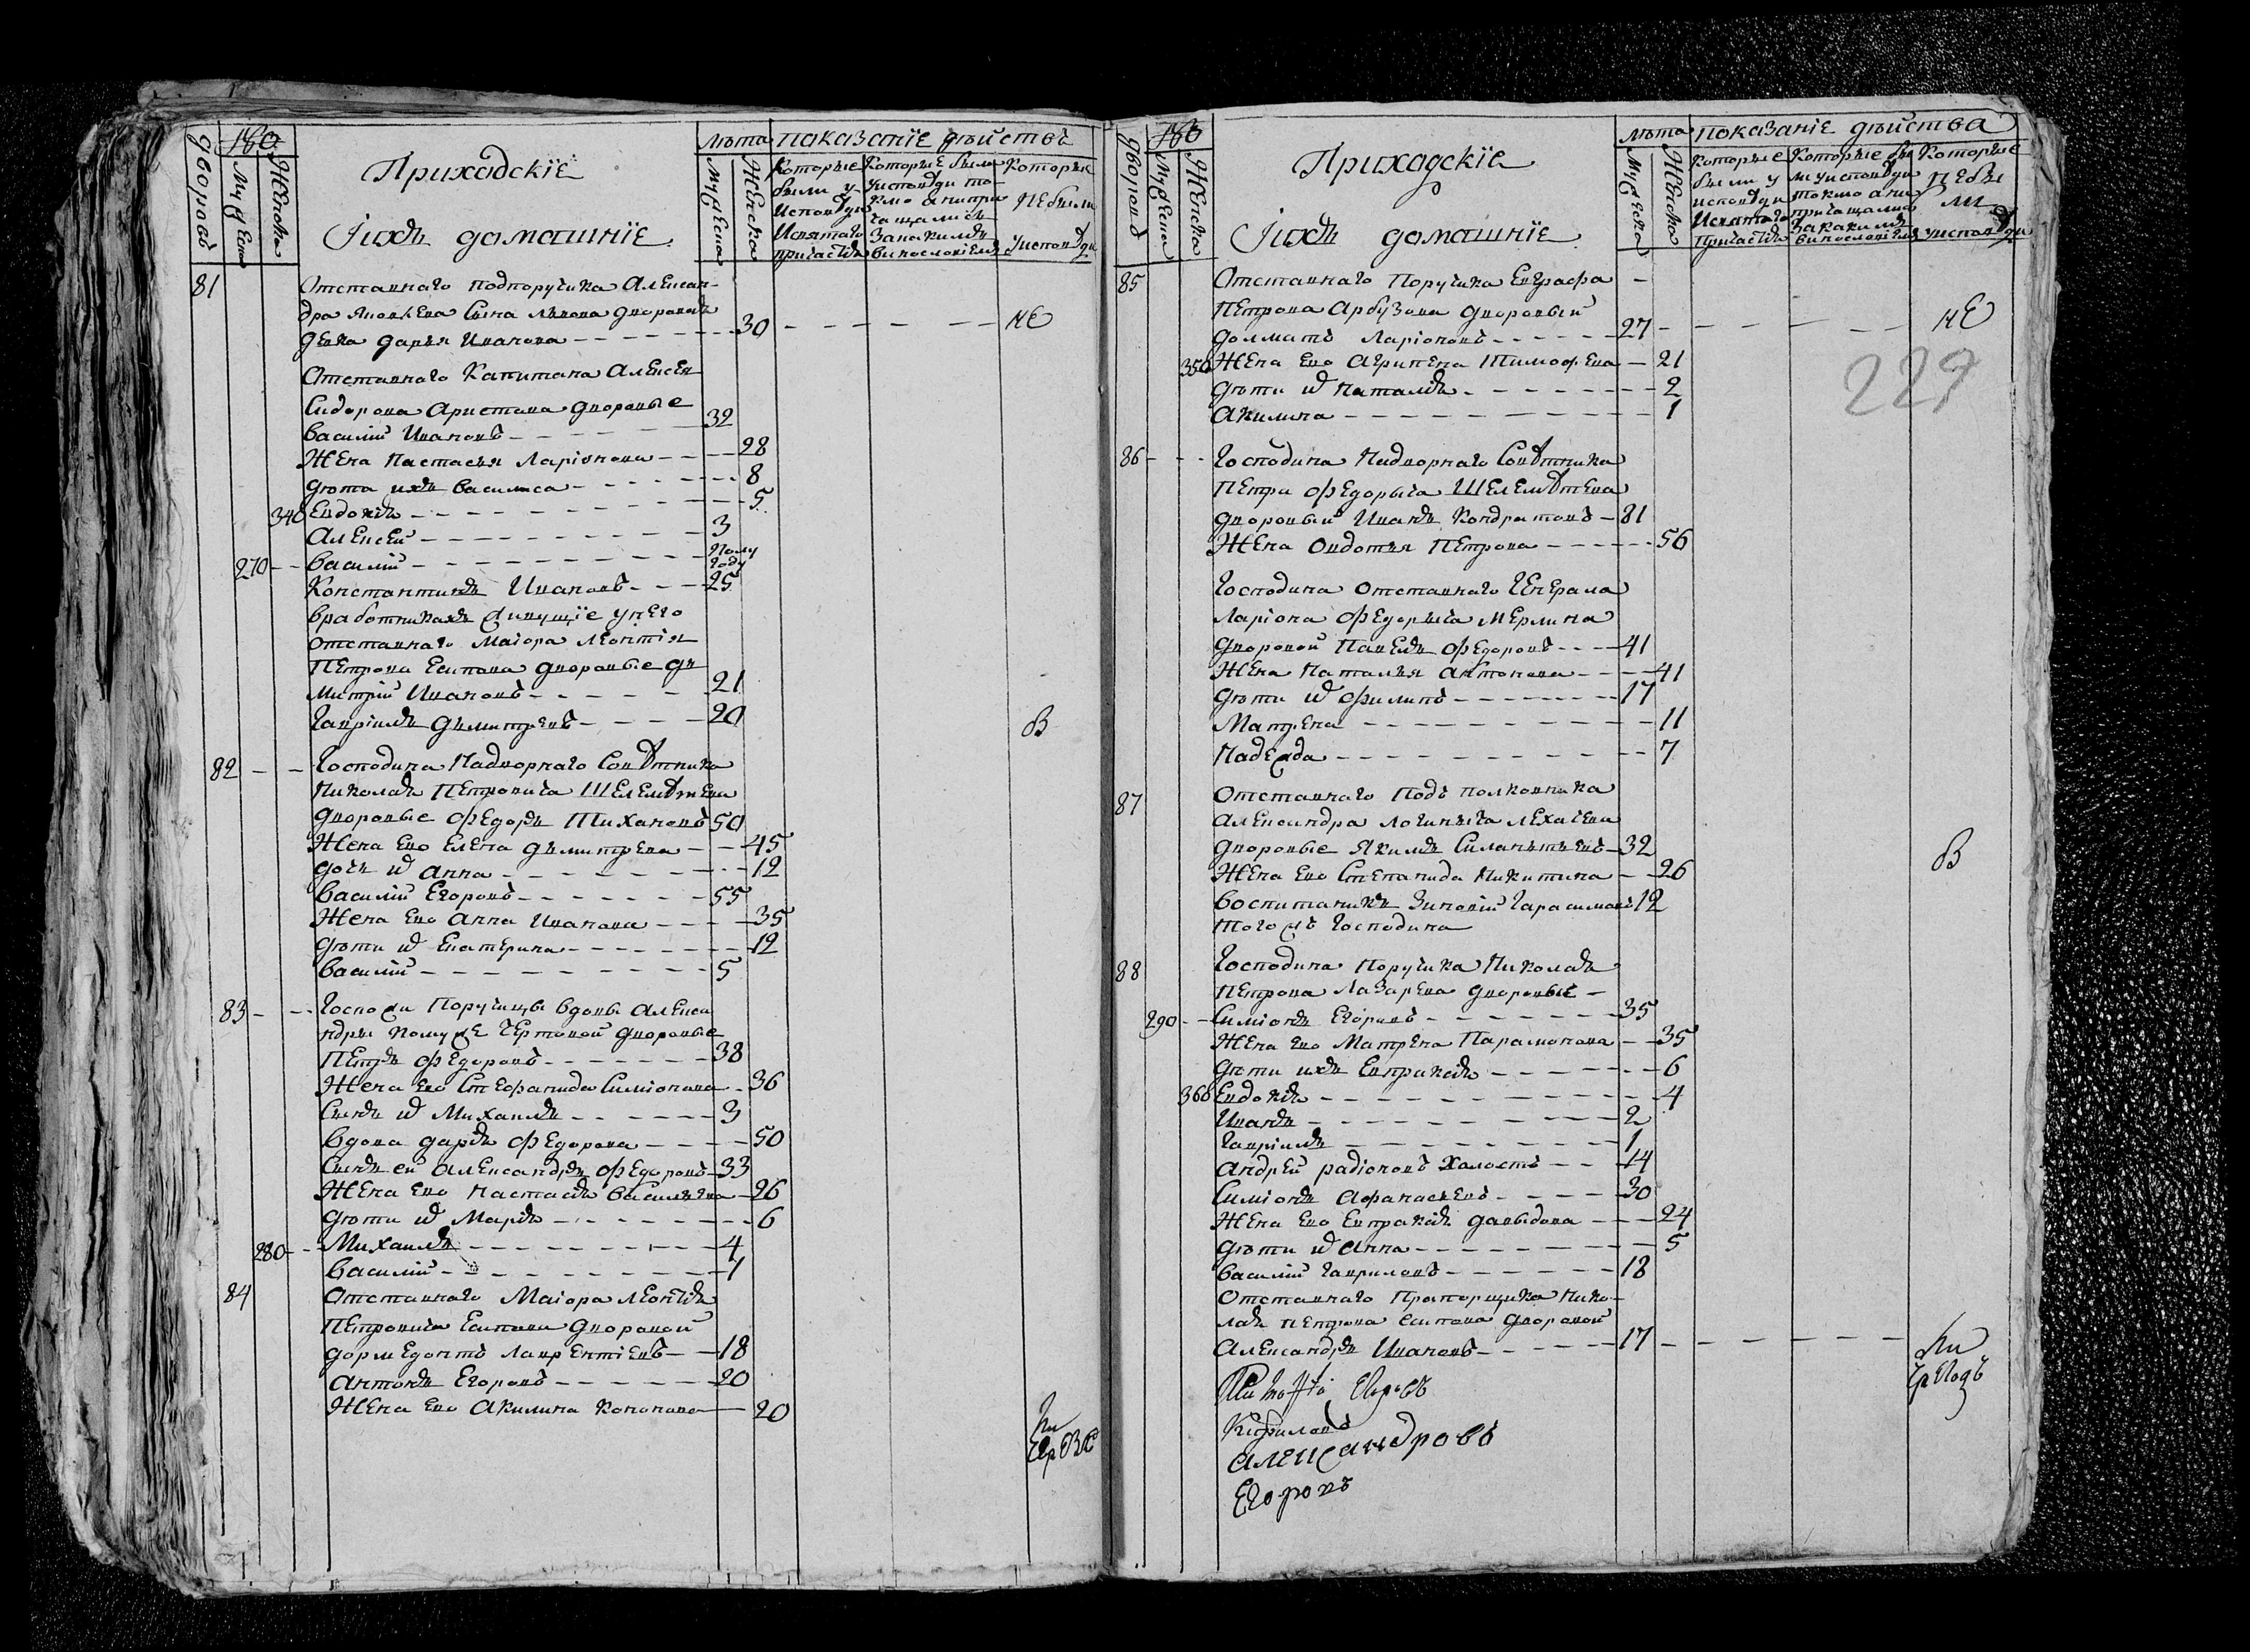 дворовъ
мужеска
женска
Приходскїе
Ихъ домашнїе
лѣта
мужеска
женска
показанїе дѣйствъ
Которые были у исповѣди и святаго причастія
Которые были у исповѣди токмо а не причащались и за какимъ винословіемъ
Которые не были у исповѣди
81 Отставнаго подпоручика Алексан-
дра Яковлева сына Лвова дворовая
дѣвка дарья Иванова 30 не
Отставнаго Капитана Алексея
Сидорова Аристова дворовые
василий Ивановъ 32
Жена Настасья Ларіонова 28
дѣти ихъ василиса 8
340 Евдокія 5
Алексей 3
270 василий полу году
Константинъ Ивановъ 25
вработникахъ живущїе унего
отставнаго Маіора леонтія
Петрова Есипова дворовые ди
митрий Ивановъ 21
Гавріилъ дъмитревъ 20 в
82 Господина Надворнаго Совѣтника
Николая Петровича Шелемѣтева
дворовые Федоръ Тихановъ 50
Жена ево Елена дъмитрева 45
дочь их Анна 12
василий Егоровъ 55
Жена ево Анна Иванова 35
дѣти их Екатерина 12
василий 5
83 Госпожи Поручицы вдовы Алекса
ндры
Чертовой дворовые
Петръ Федоровъ 38
Жена ево Стефанида Симіонова 36
Сынъ их Михаилъ 3
вдова дарія Федорова 50
Сынъ ей Александръ Федоровъ 33
Жена ево настасія василъева 26
дѣти их Марія 6
280 Михаилъ 4
василий 1
84 Отставнаго Маіора леонтія
Петровича Есипова дворовой
дормедонтъ лаврентіевъ 18
Антонъ Егоровъ 20
Жена ево Акилина Кононова 20
дворовъ
мужеска
женска
Приходскїе
Ихъ домашнїе
лѣта
мужеска
женска
показанїе дѣйства
Которые были у исповѣди и святаго причастія
Которые бы ли у исповѣди токмо а не причащались за какимъ винословіемъ
Которые не бы ли у исповѣди
85 Отставнаго Поручика Евграфа
Петрова Арбузова дворовый
долматъ Ларіоновъ 27 не
350 Жена ево Агрипена Тимофева 21
дѣти их Наталія 2
Акилина 1
227
86 Господина Надворнаго Совѣтника
Петра Федорыча Шелемѣтева
дворовый Иванъ Кондратовъ 81
Жена Овдотья Петрова 56
Господина отставнаго Генерала
Ларіона Федорыча мерлина
дворовой Павелъ Федоровъ 41
Жена Наталья Антонова 41
дѣти их Филипъ 17
Матрена 11
Надежда 7
87 Отставнаго Подъ полковника
Александра логиныча лехачева
дворовые Якимъ Силантьевъ 32
Жена ево Степанида Никитина 26 в
воспитаникъ Зиновий Гарасимовъ 12
того жъ Господина
88 Господина Поручика Николая
Петрова лазарева дворовые
290 Симіонъ Егоровъ 35
Жена ево Матрена Парамонова 35
дѣти ихъ Евпраксія 6
360 Евдокія 4
Иванъ 2
Гавріилъ 1
Андрей радіоновъ холостъ 14
Симіонъ Афанасьевъ 30
Жена ево Евпраксія давыдова 24
дѣти их Анна 5
василий Гавриловъ 18
Отставнаго Прапорщика Нико-
лая петрова есипова дворовой
Александръ Ивановъ 17
Егоровъ
Кирилавъ
Александровъ
Егоровъ